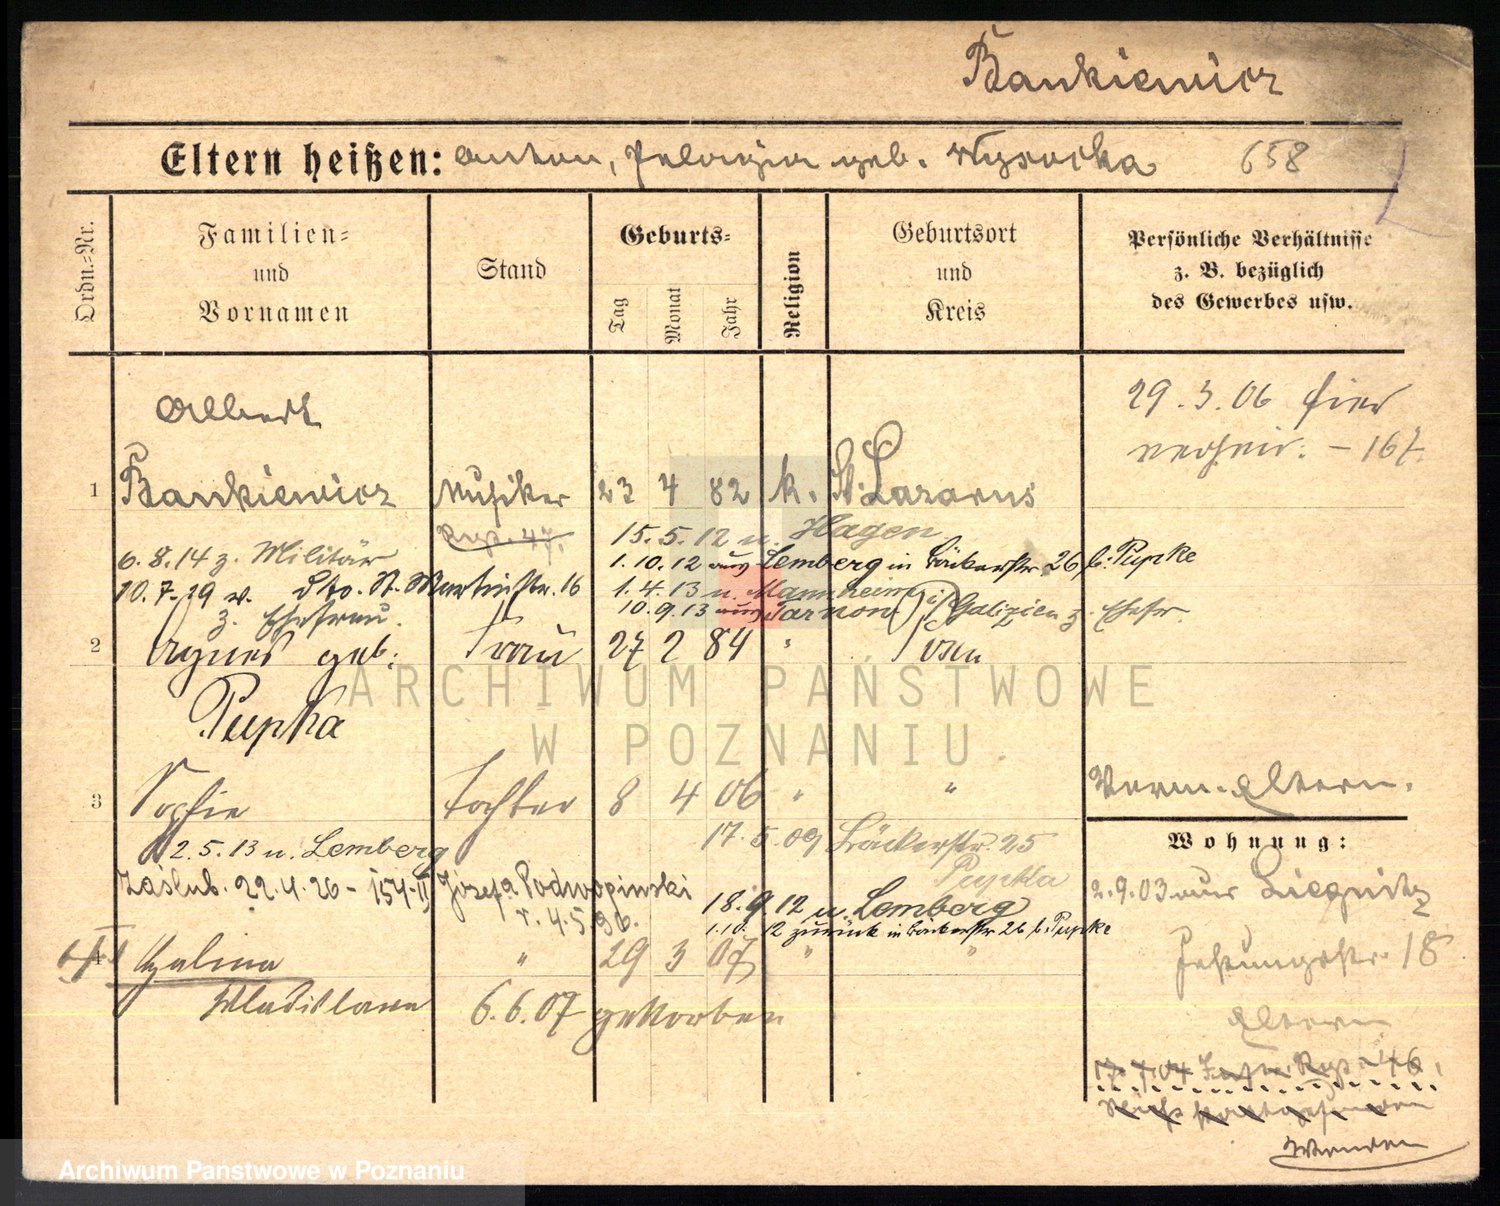 Bankiewicz
Eltern heißen: Anton, Pelagia geb. Wysocka 658
Ordn.-Nr.
Familien- und Vornamen
Stand
Geburts-
Tag Monat Jahr
Religion
Geburtsort und Kreis
Persönliche Verhältnisse
z. B. bezüglich
des Gewerbes usw.
Albert
29.3.06 hier
verheir. - 167.
1 Bankiewicz Musiker 23 4 82 k. St. Lazarus
15.5.12 n. Hagen
6.8.14 z. Militär
1.10.12 aus Lemberg in Bäckerstr. 26 b. Pupke
10.7.19 v. St. Martinstr. 16
1.4.13 n. Mannheim
z. Ehefrau.
10.9.13 aus Tarnow i. Galizien z. Ehefr.
2 Agnes geb. Frau 27 2 84 " Posen
Pupka
3 Sophie Tochter 8 4 06 " "
Verm. Eltern.
17.5.09 Bäckerstr. 25
Pupka
2.5.13 n. Lemberg
Zaślub. 22.4.26 - 154-II Józefa Podwopinski
r. 4.5.96.
18.9.12 n. Lemberg
1.10.12 zurück in Bäckerstr. 26 b. Pupke
4 Halina " 29 3 07 " "
Wladislawa 6.6.07 gestorben
Wohnung:
2.9.03 aus Liegnitz
Festungsstr. 18
Eltern
17.7.04 46.
Wenden
ARCHIWUM PAŃSTWOWE
W POZNANIU
Archiwum Państwowe w Poznaniu